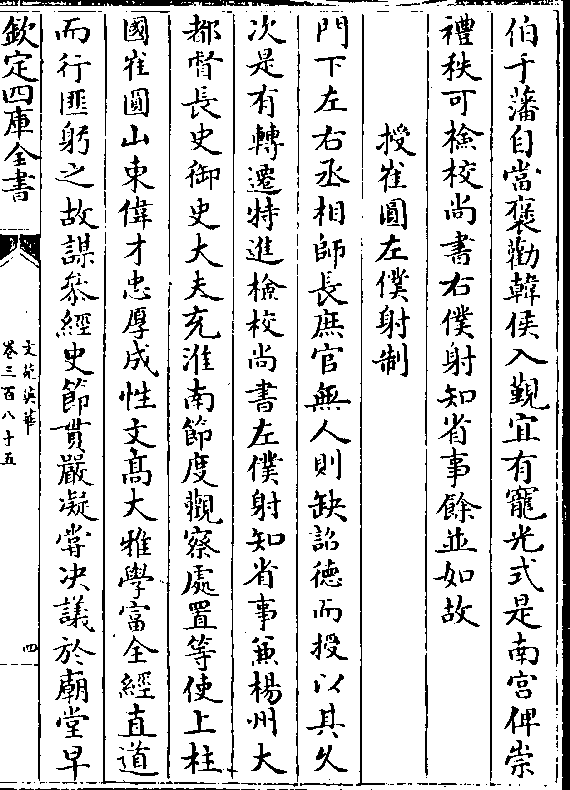 伯于藩自當褒勸韓侯入覲宜有寵光式是南宫俾崇
禮秩可檢校尚書右僕射知省事餘並如故
授崔圓左僕射制
門下左右丞相師長庶官無人則缺詔德而授以其久
次是有轉遷特進檢校尚書左僕射知省事兼楊州大
都督長史御史大夫充淮南節度觀察處置等使上柱
國崔圓山東偉才忠厚成性文髙大雅學富全經直道
而行匪躬之故謀叅經史節貫嚴凝嘗决議於廟堂早
欽定四庫全書
文苑英華
卷三百八十五
四